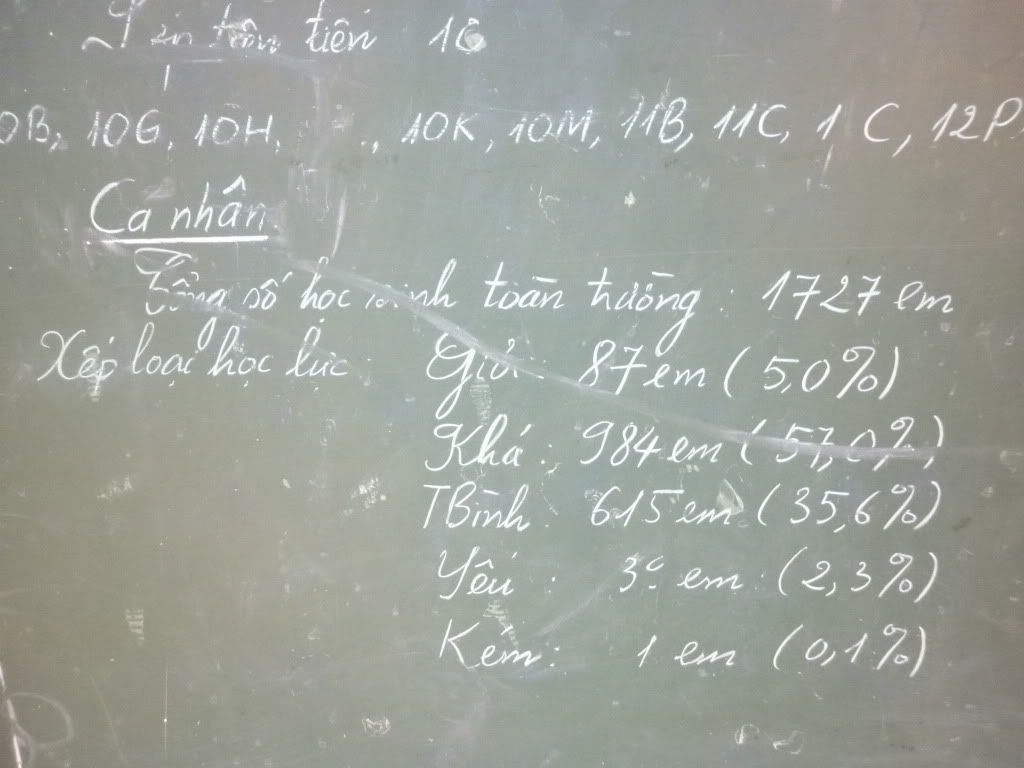 tiên tiến 10
0B, 10G, 10H, ., 10K, 10M, 11B, 11C, 1 C, 12P
Cá nhân
Tổng số học sinh toàn trường : 1727 em
Xếp loại học lực Giỏi : 87 em ( 5,0%)
Khá : 984 em ( 57,0%)
TBình : 615 em ( 35,6%)
Yếu : em : (2,3%)
Kém : 1 em (0,1%)